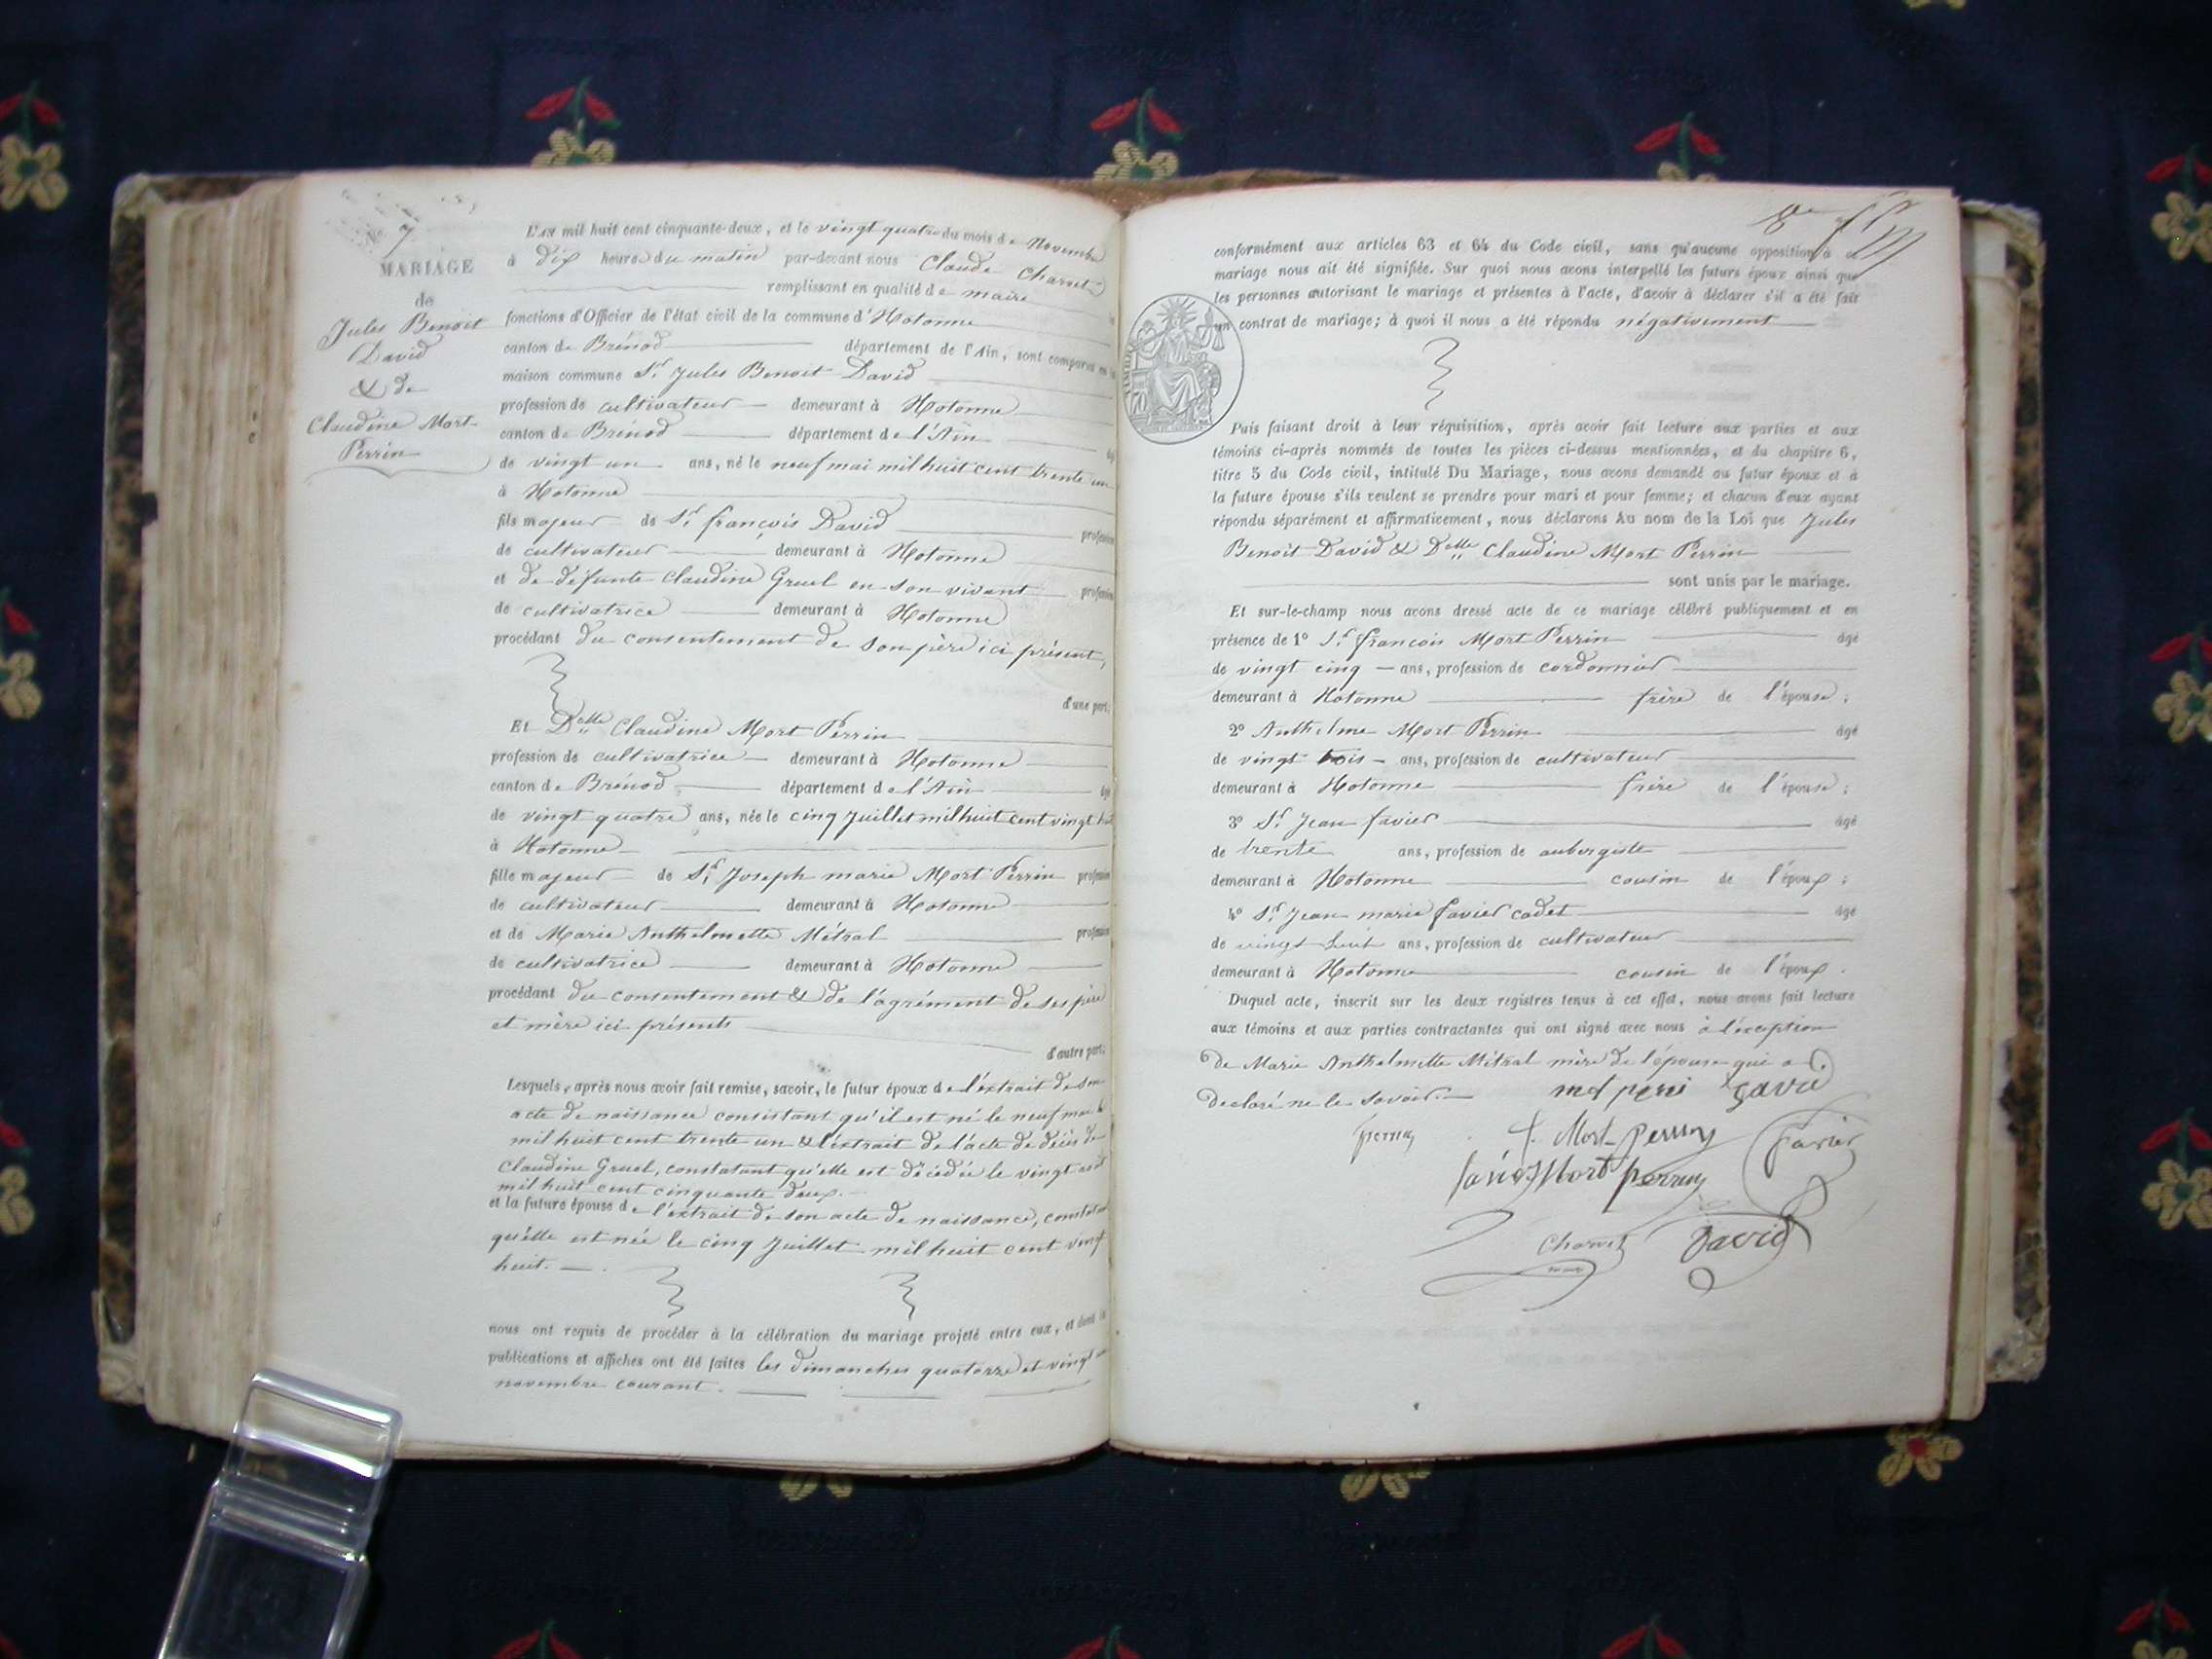 7
MARIAGE
de
Jules Benoit
David
& de
Claudine Mort
Perrin
L'AN mil huit cent cinquante-deux, et le vingt quatre du mois de Novembre
à dix heures du matin par-devant nous Claude Charvet
remplissant en qualité de maire
fonctions d'Officier de l'état civil de la commune d'Hotonne
canton de Brénod département de l'Ain, sont comparus en la
maison commune Sr Jules Benoit David
profession de cultivateur demeurant à Hotonne
canton de Brénod département de l'Ain
de vingt un ans, né le neuf mai mil huit cent trente un
à Hotonne
fils majeur de Sr françois David profession
de cultivateur demeurant à Hotonne
et de défunte Claudine Gruel en son vivant profession
de cultivatrice demeurant à Hotonne
procédant du consentement de son père ici présent,
d'une part;
Et Delle Claudine Mort Perrin
profession de cultivatrice demeurant à Hotonne
canton de Brénod département de l'Ain âgé
de vingt quatre ans, née le cinq Juillet mil huit cent vingt huit
à Hotonne
fille majeur de Sr Joseph marie Mort Perrin profession
de cultivateur demeurant à Hotonne
et de Marie Anthelmette Métral profession
de cultivatrice demeurant à Hotonne
procédant du consentement & de l'agrément de ses père
et mère ici présents
d'autre part;
Lesquels, après nous avoir fait remise, savoir, le futur époux de l'extrait de son
acte de naissance consistant qu'il est né le neuf mai
mil huit cent trente un & l'extrait de l'acte de décès de
Claudine Gruel, constatant qu'elle est décédée le vingt août
mil huit cent cinquante deux.
et la future épouse de l'extrait de son acte de naissance, constatant
qu'elle est née le cinq Juillet mil huit cent vingt
huit.
nous ont requis de procéder à la célébration du mariage projeté entre eux, et dont les
publications et affiches ont été faites les dimanches quatorze et vingt un
novembre courant.
conformément aux articles 63 et 64 du Code civil, sans qu'aucune opposition à ce
mariage nous ait été signifiée. Sur quoi nous avons interpellé les futurs époux ainsi que
les personnes autorisant le mariage et présentes à l'acte, d'avoir à déclarer s'il a été fait
un contrat de mariage; à quoi il nous a été répondu négativement
TIMBRE
Puis faisant droit à leur réquisition, après avoir fait lecture aux parties et aux
témoins ci-après nommés de toutes les pièces ci-dessus mentionnées, et du chapitre 6,
titre 5 du Code civil, intitulé Du Mariage, nous avons demandé au futur époux et à
la future épouse s'ils veulent se prendre pour mari et pour femme; et chacun d'eux ayant
répondu séparément et affirmativement, nous déclarons Au nom de la Loi que Jules
Benoit David & Delle Claudine Mort Perrin
sont unis par le mariage.
Et sur-le-champ nous avons dressé acte de ce mariage célébré publiquement et en
présence de 1° Sr françois Mort Perrin âgé
de vingt cinq ans, profession de cordonnier
demeurant à Hotonne frère de l'épouse;
2° Anthelme Mort Perrin âgé
de vingt trois ans, profession de cultivateur
demeurant à Hotonne frère de l'épouse;
3° Sr Jean favier âgé
de trente ans, profession de aubergiste
demeurant à Hotonne cousin de l'époux;
4° Sr Jean marie favier cadet âgé
de vingt huit ans, profession de cultivateur
demeurant à Hotonne cousin de l'époux.
Duquel acte, inscrit sur les deux registres tenus à cet effet, nous avons fait lecture
aux témoins et aux parties contractantes qui ont signé avec nous à l'exception
de Marie Anthelmette Métral mère de l'épouse qui a
declaré ne le savoir.
David
f. Mort Perrin favier
Mort perrin
Charvet David